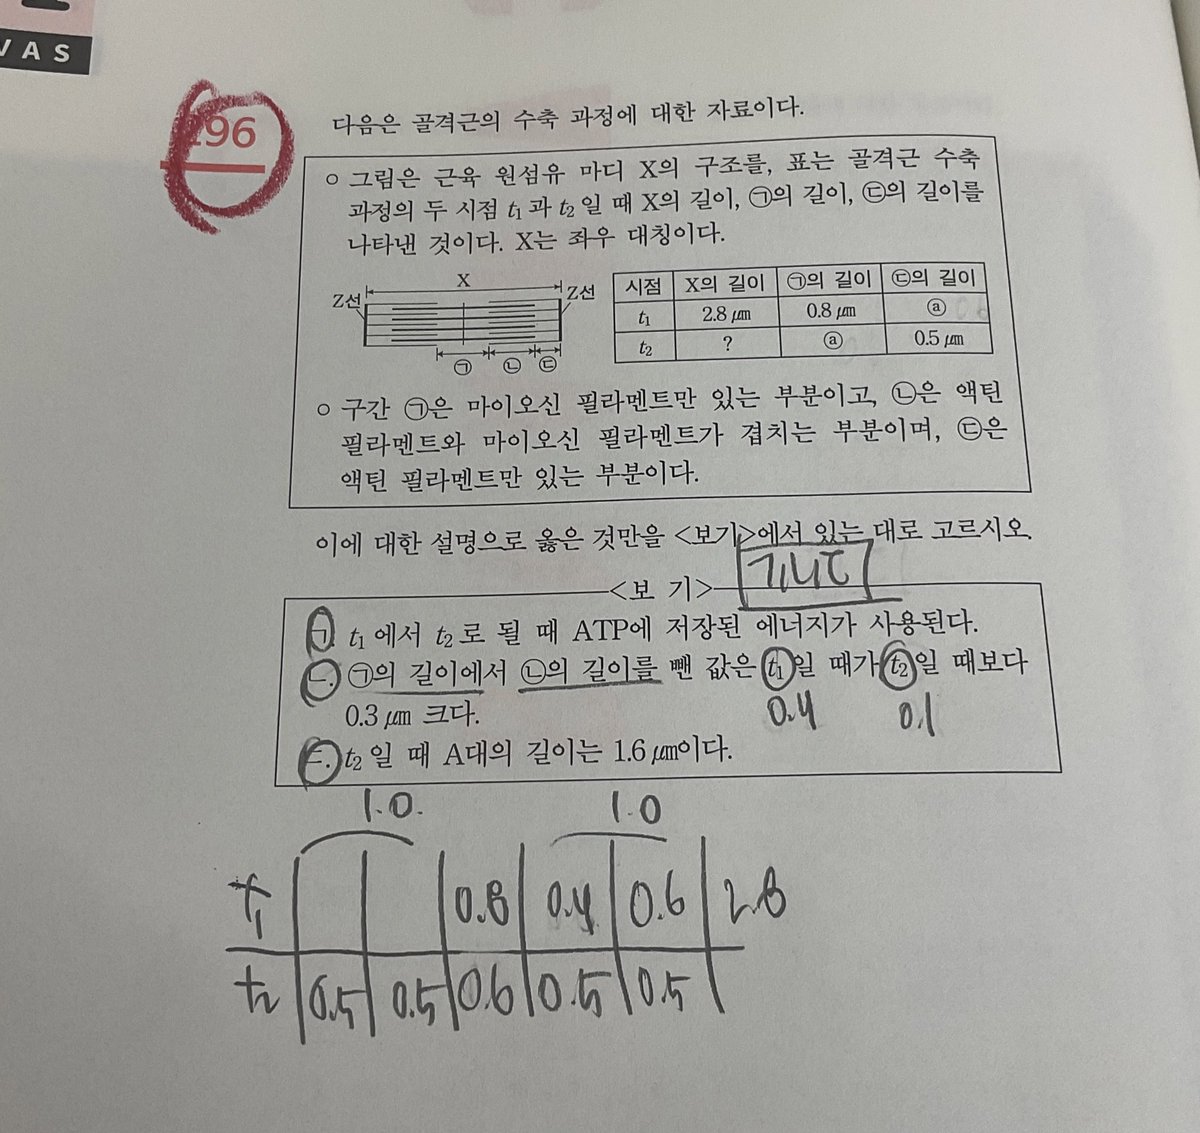 VAS
296
다음은 골격근의 수축 과정에 대한 자료이다.
○ 그림은 근육 원섬유 마디 X의 구조를, 표는 골격근 수축
과정의 두 시점 t₁과 t₂일 때 X의 길이, ㉠의 길이, ㉢의 길이를
나타낸 것이다. X는 좌우 대칭이다.
X
Z선 Z선
㉠ ㉡ ㉢
시점 X의 길이 ㉠의 길이 ㉢의 길이
t₁ 2.8 ㎛ 0.8 ㎛ ⓐ
t₂ ? ⓐ 0.5 ㎛
○ 구간 ㉠은 마이오신 필라멘트만 있는 부분이고, ㉡은 액틴
필라멘트와 마이오신 필라멘트가 겹치는 부분이며, ㉢은
액틴 필라멘트만 있는 부분이다.
이에 대한 설명으로 옳은 것만을 <보기>에서 있는 대로 고르시오.
ㄱ,ㄴ,ㄷ
<보 기>
ㄱ. t₁에서 t₂로 될 때 ATP에 저장된 에너지가 사용된다.
ㄴ. ㉠의 길이에서 ㉡의 길이를 뺀 값은 t₁일 때가 t₂일 때보다
0.3 ㎛ 크다.
0.4 0.1
ㄷ. t₂일 때 A대의 길이는 1.6 ㎛이다.
1.0. 1.0
t₁ 0.8 0.4 0.6 2.8
t₂ 0.5 0.5 0.6 0.5 0.5